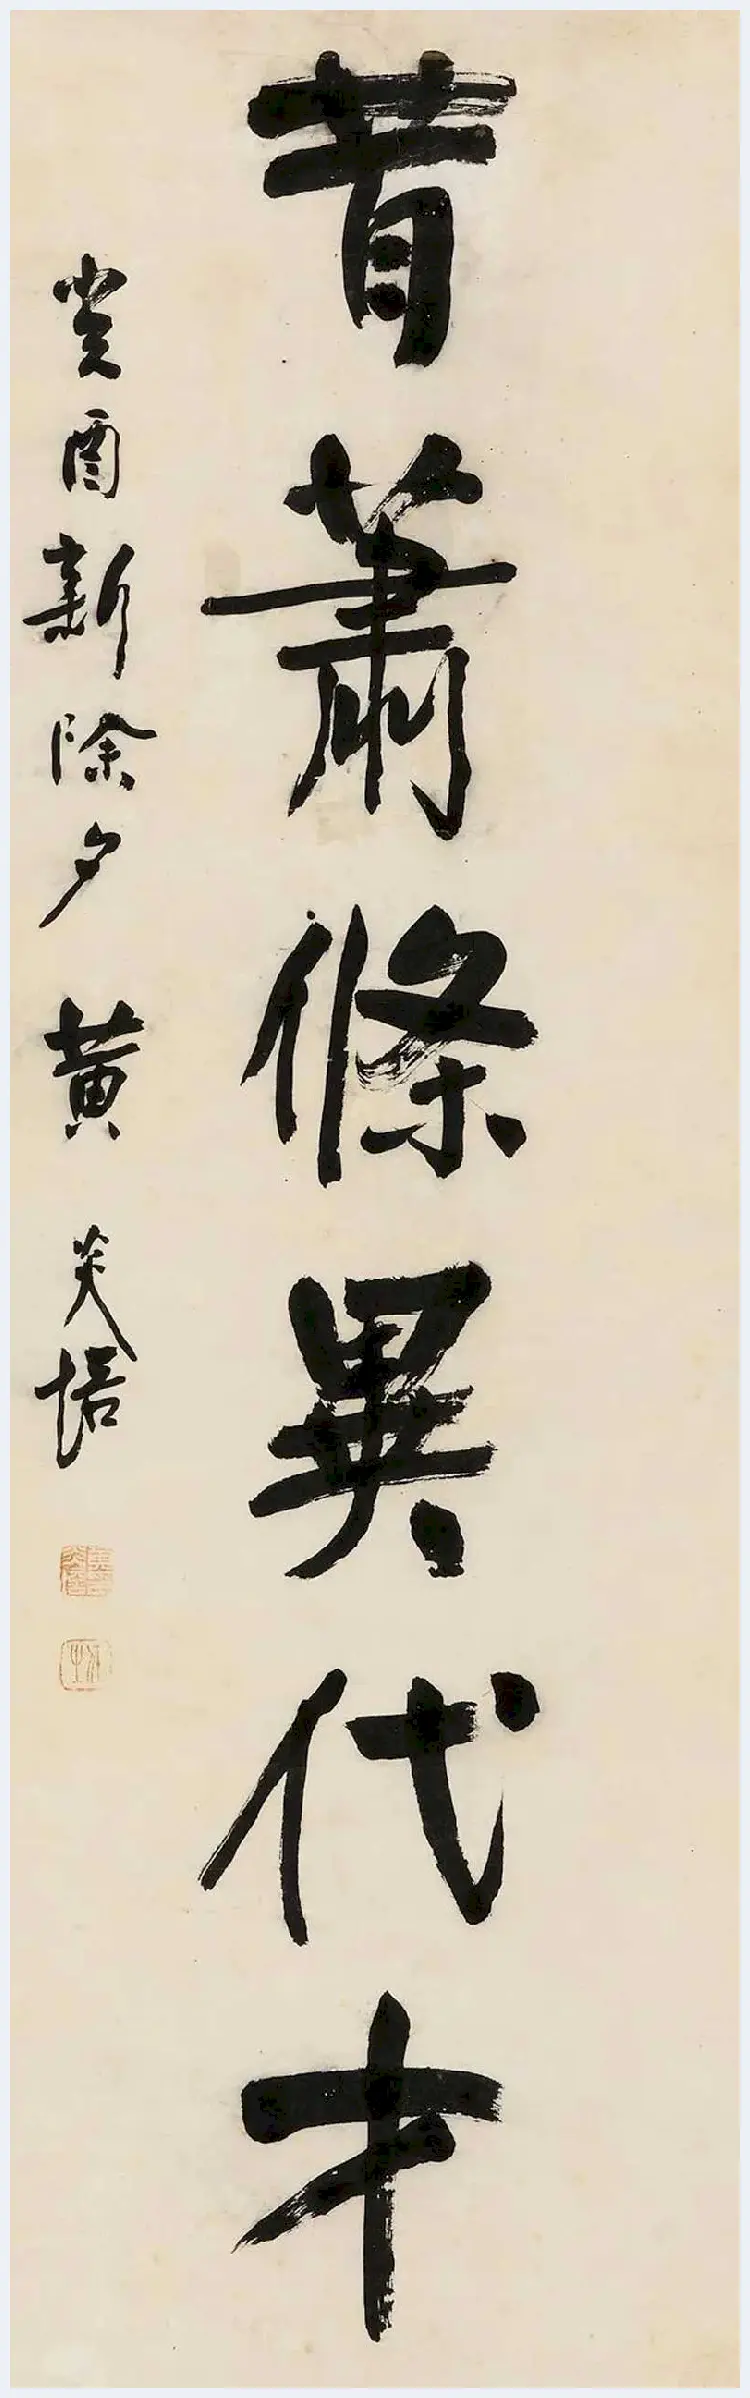 昔蕭條異代才
癸酉新除夕 黃炎培